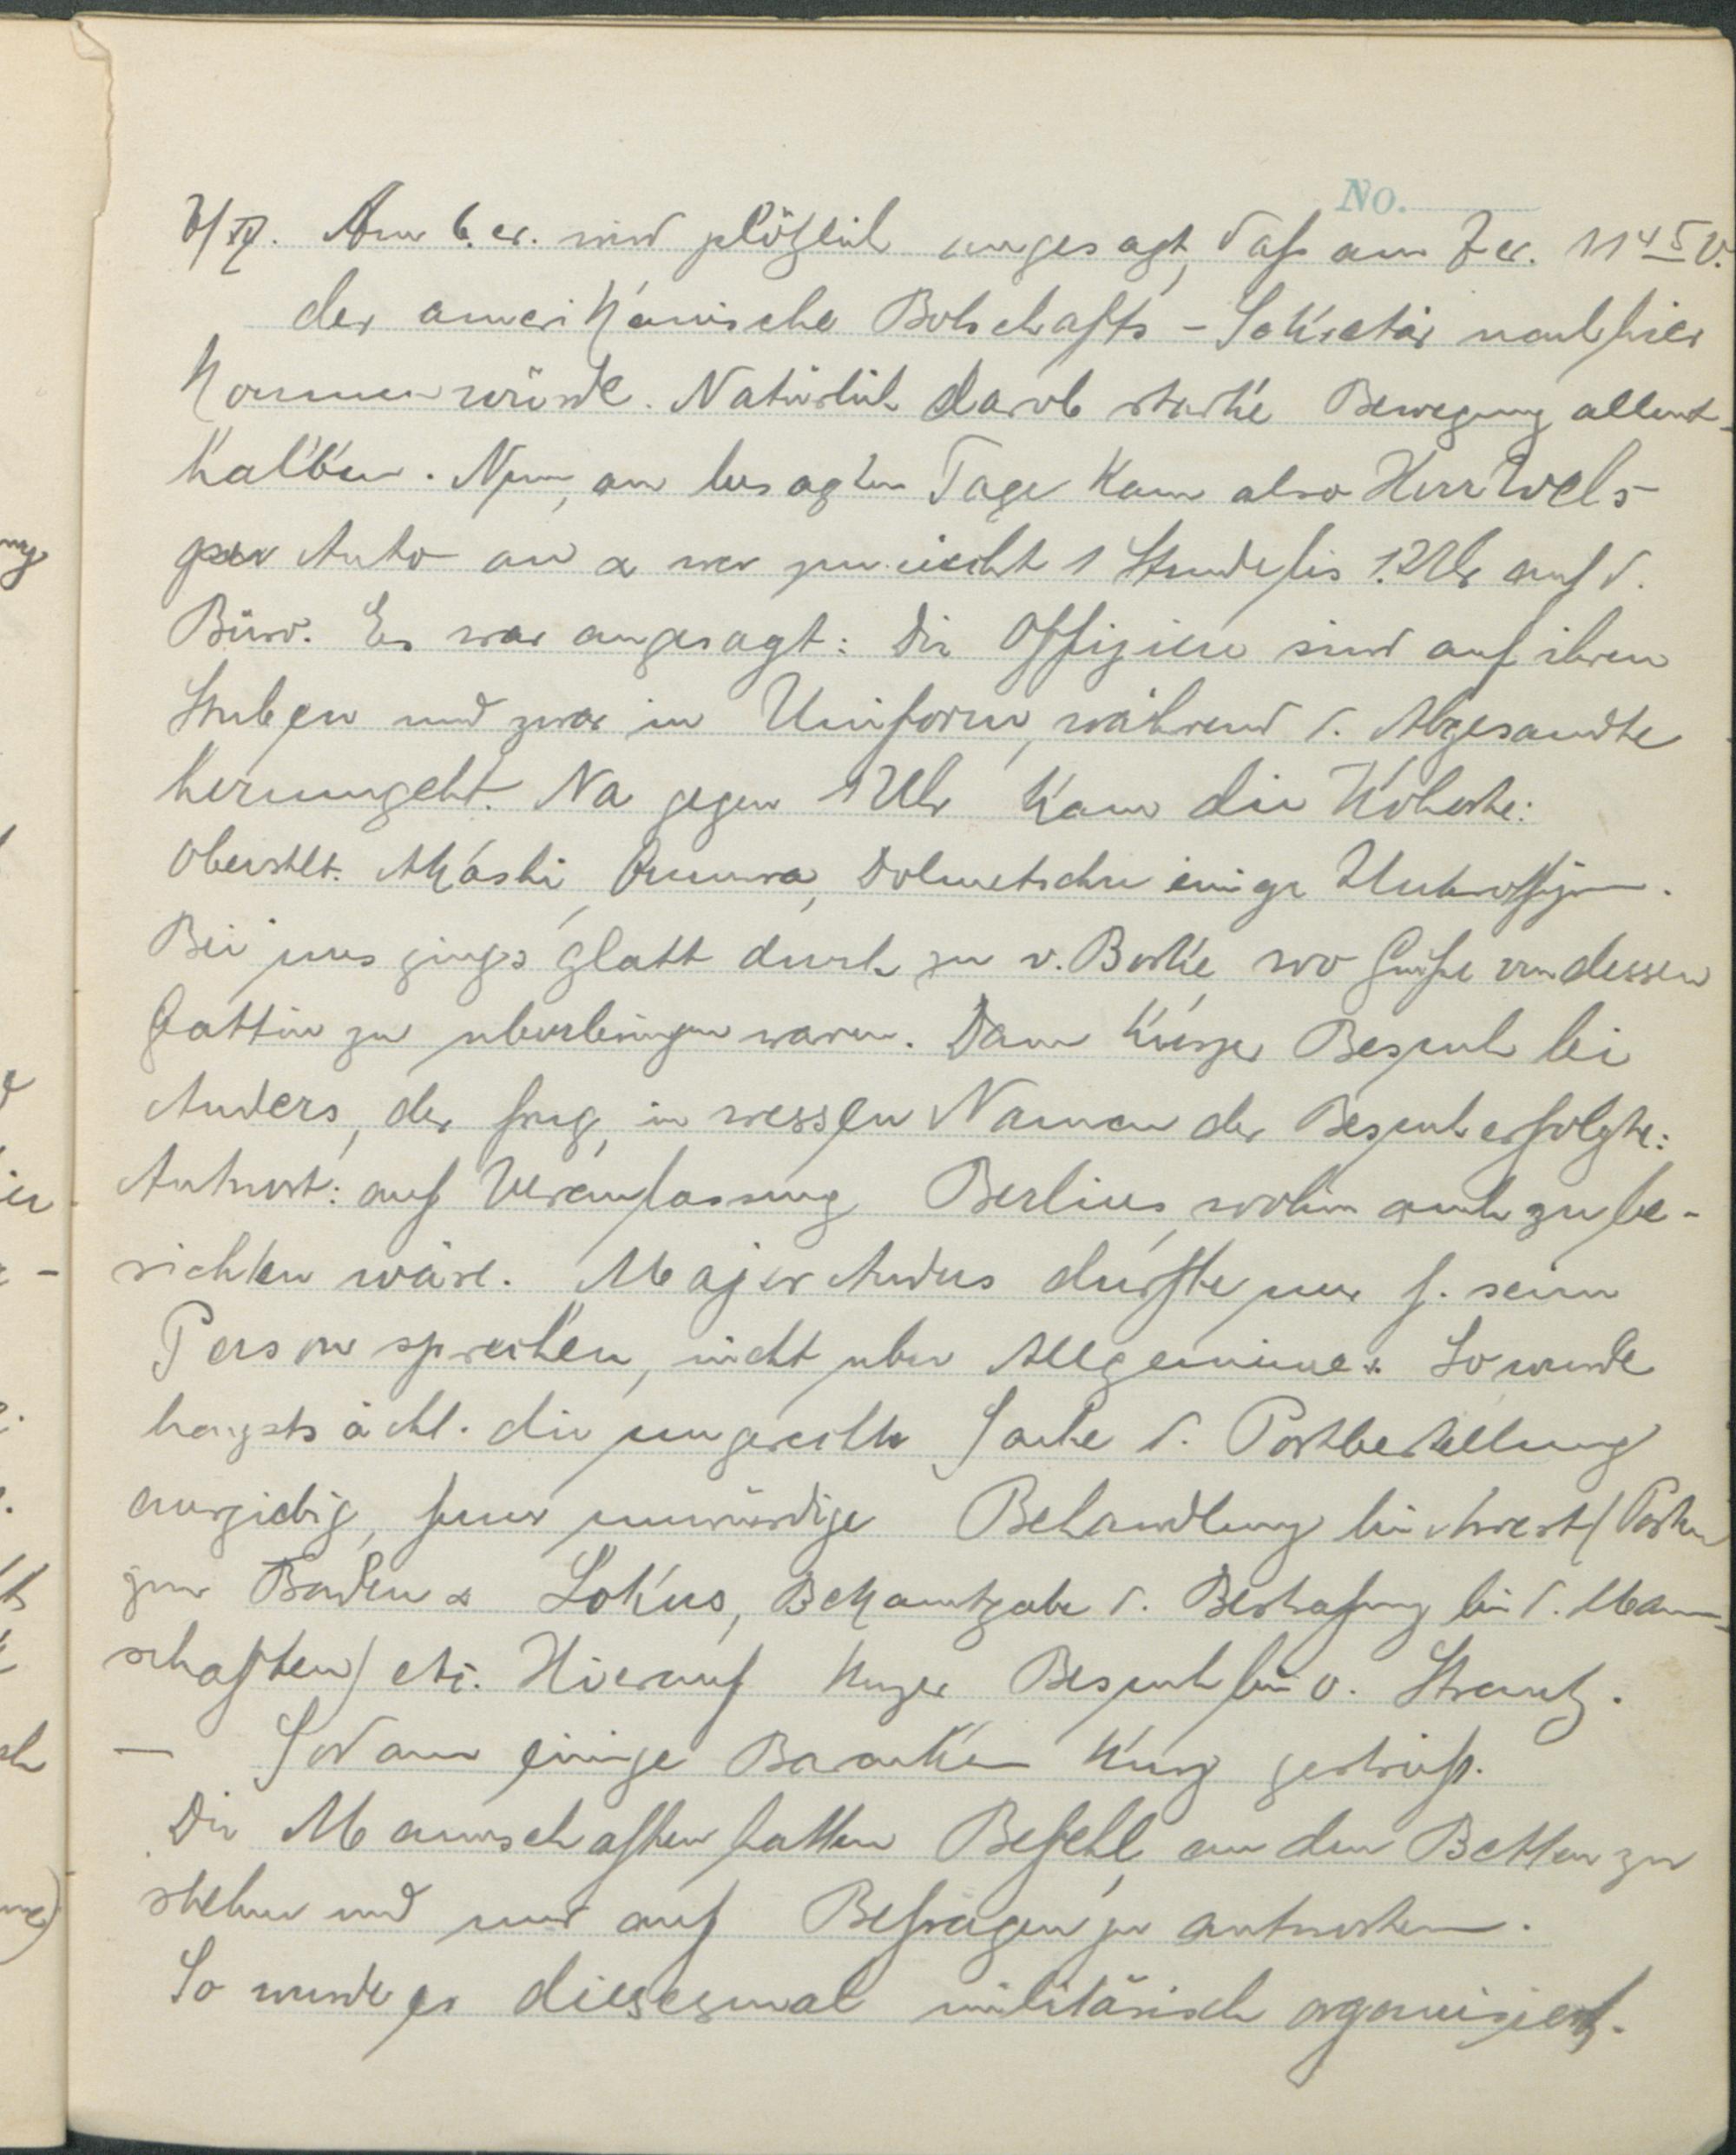 No.
7/IV. Am 6. cr. wird plötzlich angesagt, daß am 7 cr. 11⁴⁵ V.
der amerikanische Botschafts-Sekretär nach hier
kommen würde. Natürlich darob starke Bewegung allent-
halben. Nun, am besagten Tage kam also Herr Wels
per Auto an & war zunächst 1 Stunde bis 12 Uhr auf d.
Büro. Es war angesagt: Die Offiziere sind auf ihren
Stuben und zwar in Uniform, während d. Abgesandte
herumgeht. Na gegen 1 Uhr kam die Kohorte:
Oberstlt. Makoshi, Omura, Dolmetscher einige Unteroffiz.
Bei uns gings glatt durch zu v. Bortke wo Grüße von dessen
Gattin zu überbringen waren. Dann kurzer Besuch bei
Anders, der frug, in wessen Namen der Besuch erfolgte:
Antwort: auf Veranlassung Berlins, wohin auch zu be-
richten wäre. Major Anders durfte nur f. seine
Person sprechen, nicht über Allgemeines. So wurde
hauptsächl. die ungerechte Sache d. Postbestellung
ausgiebig, ferner unwürdige Behandlung bei Arrest (Posten
zum Baden & Lokus, Bekanntgabe d. Bestrafung bei d. Mann-
schaften) etc. Hierauf kurzer Besuch bei v. Strantz.
— Sodann einige Baracken kurz gestreift.
Die Mannschaften hatten Befehl, an den Betten zu
stehen und nur auf Befragen zu antworten.
So wurde es diesesmal militärisch organisiert.